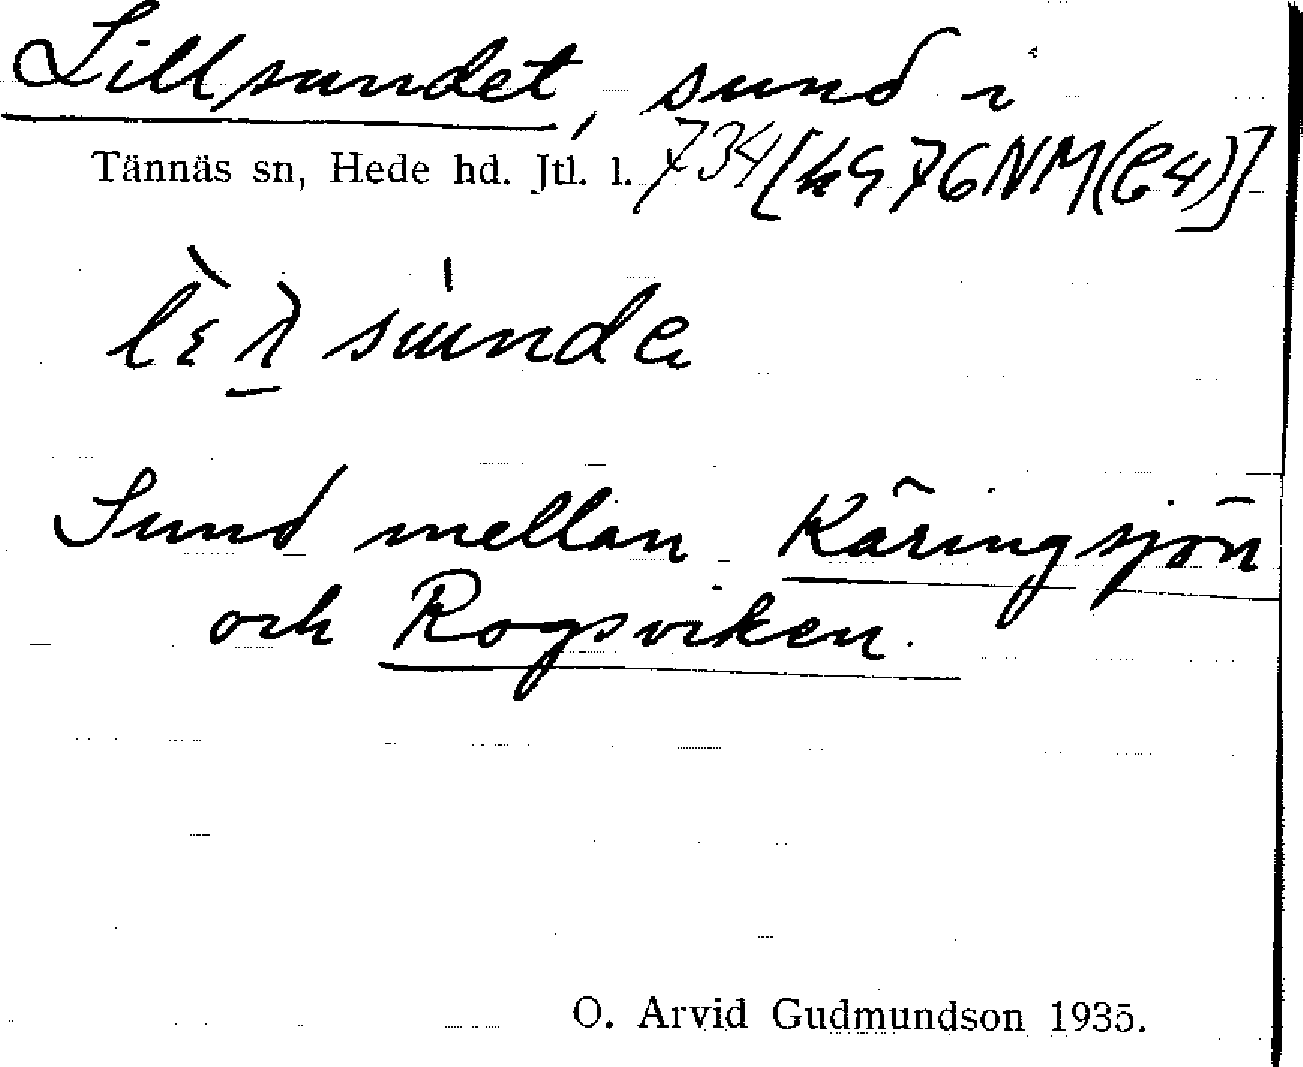 Lillsundet, sund i
Tännäs sn, Hede hd. Jtl. l. 734 [kg 76NM(C4)]
Sund mellan Käringsjön
och Rogsviken.
O. Arvid Gudmundson 1935.